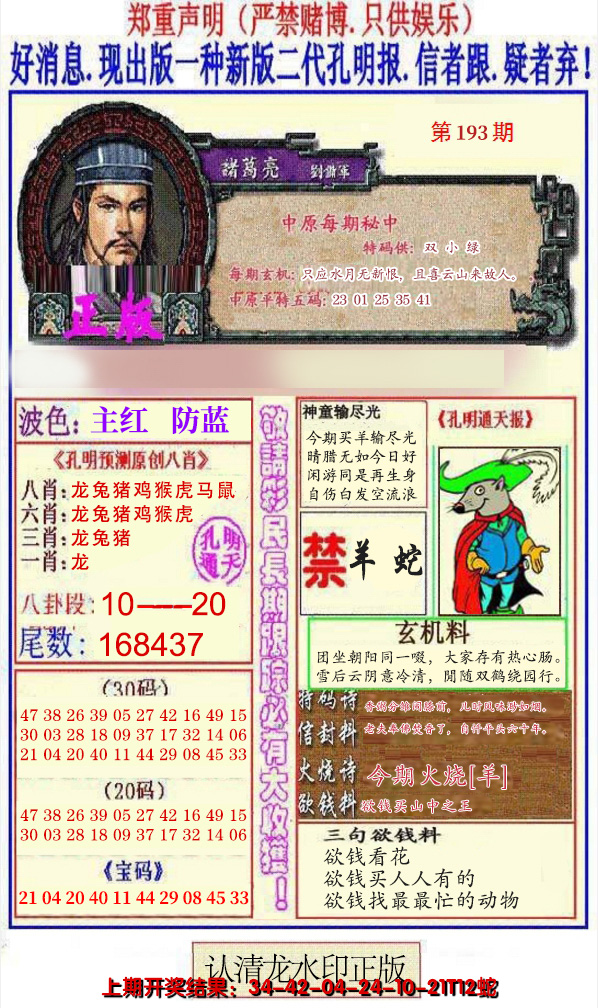 郑重声明（严禁赌博.只供娱乐）
好消息.现出版一种新版二代孔明报.信者跟.疑者弃！
第193期
諸葛亮 劉備軍
中原每期秘中
特码供：双 小 绿
每期玄机：只应水月无新恨，且喜云山来故人。
中原平特五码：23 01 25 35 41
正版
波色：主红 防蓝
《孔明预测原创八肖》
八肖：龙兔猪鸡猴虎马鼠
六肖：龙兔猪鸡猴虎
三肖：龙兔猪
一肖：龙
孔明
通天
八卦段：10——20
尾数：168437
（30码）
47 38 26 39 05 27 42 16 49 15
30 03 28 18 09 37 17 32 14 06
21 04 20 40 11 44 29 08 45 33
（20码）
47 38 26 39 05 27 42 16 49 15
30 03 28 18 09 37 17 32 14 06
《宝码》
21 04 20 40 11 44 29 08 45 33
敬請彩民長期跟踪必有大收獲！
神童输尽光
今期买羊输尽光
晴腊无如今日好
闲游同是再生身
自伤白发空流浪
《孔明通天报》
禁 羊 蛇
玄机料
团坐朝阳同一啜，大家存有热心肠。
雪后云阴意冷清，閒随双鹤绕园行。
特码诗 香粥分雏间膝前，儿时风味渺如烟。
信封料 老去奉佛焚香了，自忏平头六十年。
火烧诗 今期火烧[羊]
欲钱料 欲钱买山中之王
三句欲钱料
欲钱看花
欲钱买人人有的
欲钱找最最忙的动物
认清龙水印正版
上期开奖结果：34-42-04-24-10-21T12蛇